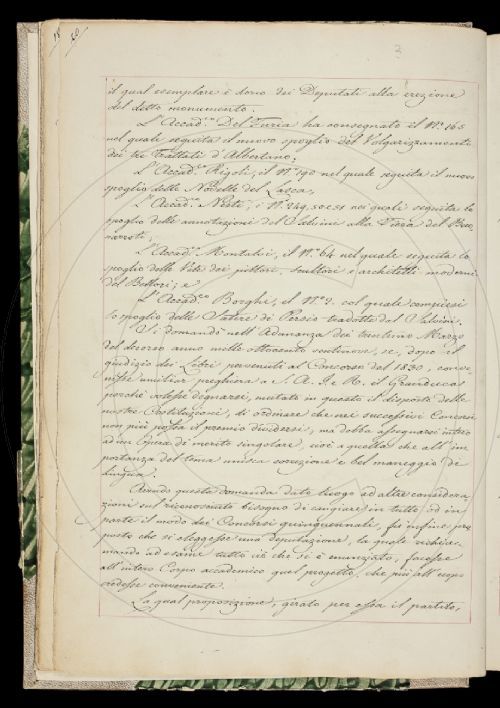 3
il qual esemplare è dono dei Deputati alla erezione
del detto monumento.
L'Accad.co Del Furia ha consegnato il N.o 165
nel quale seguita il nuovo spoglio del Volgarizzamento
dei tre Trattati d'Albertano;
L'Accad.co Rigoli, il N.o 190 nel quale seguita il nuovo
spoglio delle Novelle del Lasca,
L'Accad.co Nesti, i N.i 249, 50 e 51 nei quali seguita lo
spoglio delle annotazioni del Salvini alla Fiera del Buo-
narroti;
L'Accad.co Montalvi, il N.o 64 nel quale seguita lo
spoglio delle Vite dei pittori, scultori e architetti moderni
del Bellori; e
L'Accad.co Borghi, il N.o 2. col quale compiesi
lo spoglio delle Satire di Persio tradotte dal Salvini.
Si domandò nell'Adunanza dei trentuno Marzo
del decorso anno mille ottocento ventinove, se, dopo il
giudizio dei Libri pervenuti al Concorso del 1830, conve-
nisse umiliar preghiera a S. A. I. e R. il Granduca
perchè volesse degnarsi, mutato in questo il disposto delle
nostre Costituzioni, di ordinare che nei successivi Concorsi
non più possa il premio dividersi, ma debba assegnarsi intero
ad un'Opera di merito singolare, cioè a quella che all'im-
portanza del tema unisca correzione e bel maneggio di
Lingua.
Avendo questa domanda dato luogo ad altre considera-
zioni sul riconosciuto bisogno di cangiare in tutto, od in
parte il modo dei Concorsi quinquennali, fu infine pro-
posto che si eleggesse una deputazione, la quale richia-
mando ad esame tutto ciò che si è enunziato, facesse
all'intero Corpo accademico quel progetto, che più all'uopo
credesse conveniente.
La qual proposizione, girato per essa il partito,